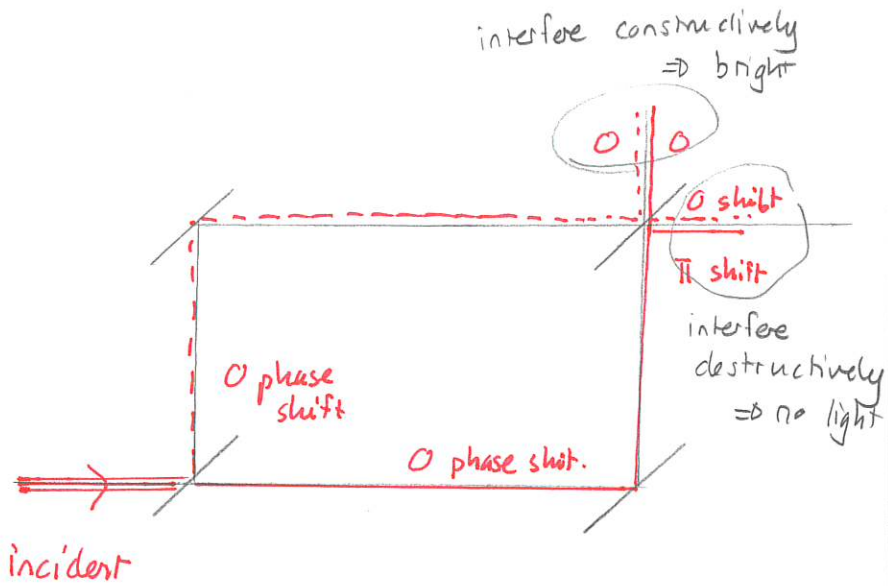 interfere constructively
⇒ bright
0 0
0 shift
π shift
interfere
destructively
⇒ no light
0 phase
shift
0 phase shit.
incident